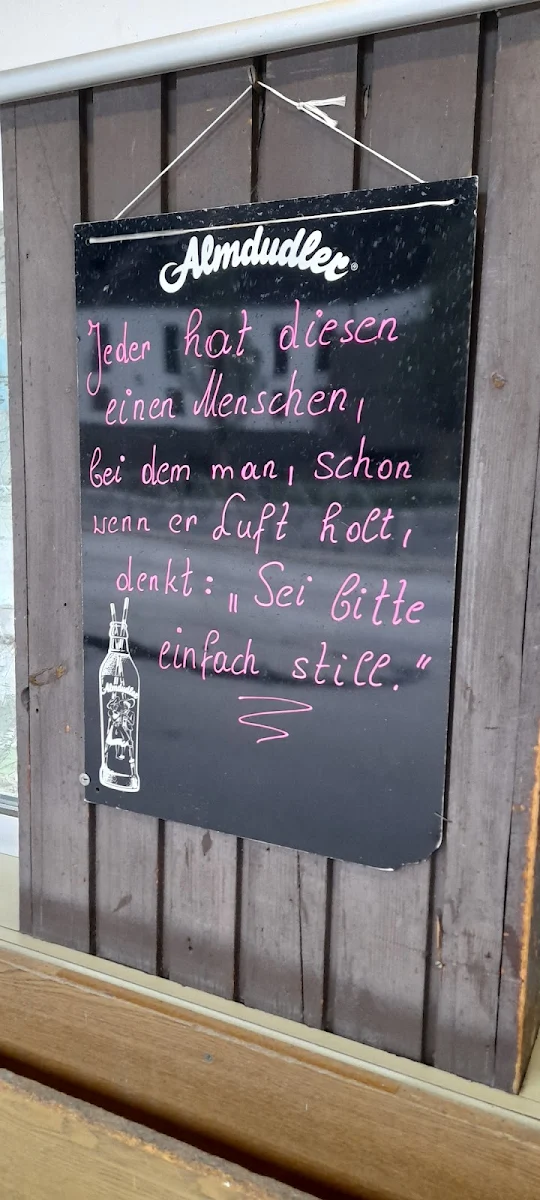 Almdudler®
Jeder hat diesen
einen Menschen,
bei dem man, schon
wenn er Luft holt,
denkt: „Sei bitte
einfach still."
Almdudler